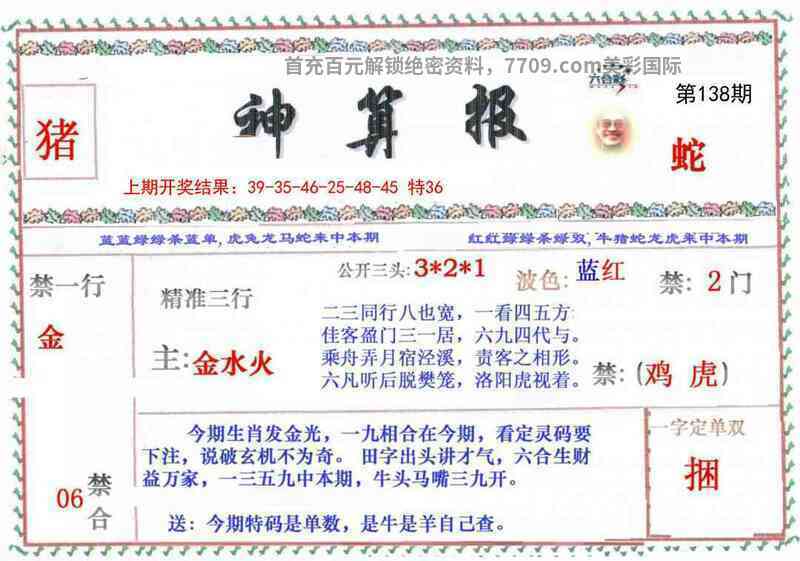 首充百元解锁绝密资料，7709.com美彩国际
六合彩
第138期
猪
神算报
蛇
上期开奖结果：39-35-46-25-48-45 特36
蓝蓝绿绿条蓝单,虎兔龙马蛇来中本期
红红绿绿条绿双,牛猪蛇龙虎来中本期
禁一行
金
精准三行
主:金水火
公开三头:3*2*1
波色:蓝红
禁:2门
二三同行八也宽，一看四五方
佳客盈门三一居，六九四代与。
乘舟弄月宿泾溪，责客之相形。
六凡听后脱樊笼，洛阳虎视着。
禁:(鸡 虎)
06
禁合
今期生肖发金光，一九相合在今期，看定灵码要
下注，说破玄机不为奇。 田字出头讲才气，六合生财
益万家，一三五九中本期，牛头马嘴三九开。
送：今期特码是单数，是牛是羊自己查。
一字定单双
捆